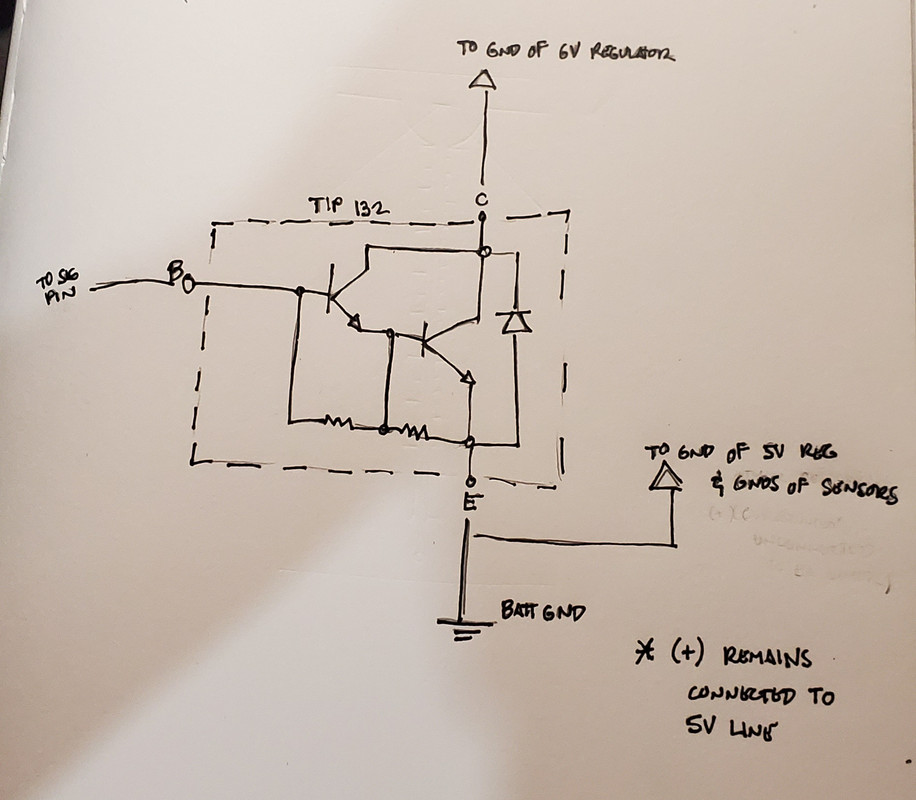 TO GND OF 6V REGULATOR
C
TIP 132
B
TO SIG
PIN
E
TO GND OF 5V REG
& GNDS OF SENSORS
BATT GND
* (+) REMAINS
CONNECTED TO
5V LINE